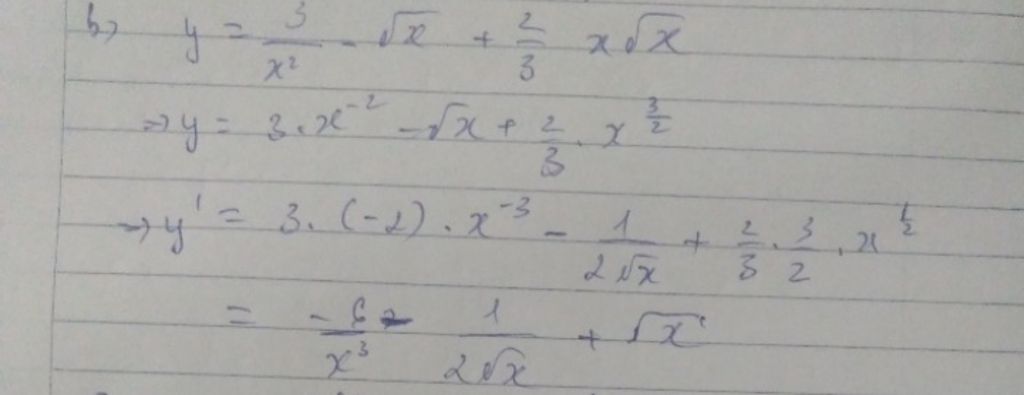 b) y = 3/x² - √x + 2/3 x√x
⇒ y = 3.x⁻² - √x + 2/3 . x^(3/2)
⇒ y' = 3.(-2).x⁻³ - 1/(2√x) + 2/3 . 3/2 . x^(1/2)
= -6/x³ - 1/(2√x) + √x